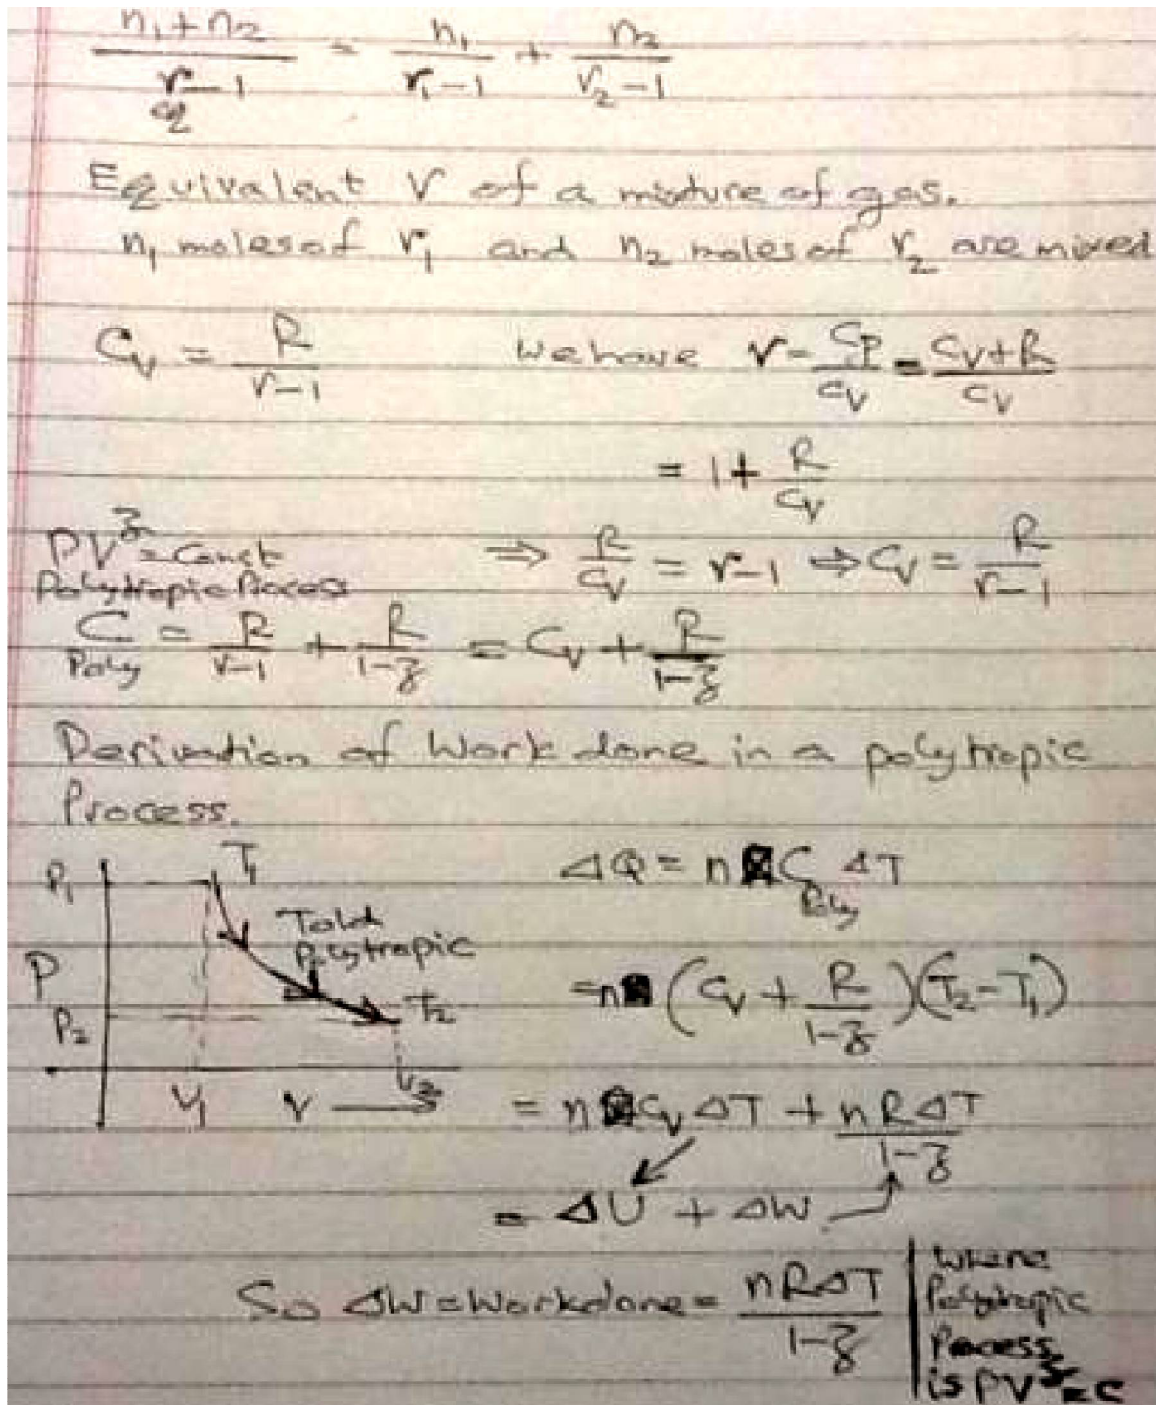 n₁+n₂ / r_eq−1 = n₁ / r₁−1 + n₂ / r₂−1
Equivalent r of a mixture of gas.
n₁ moles of r₁ and n₂ moles of r₂ are mixed
C_V = R / r−1 We have r = C_P / C_V = C_V+R / C_V
= 1 + R / C_V
PV^z = Const ⇒ R / C_V = r−1 ⇒ C_V = R / r−1
Polytropic Process
C_Poly = R / r−1 + R / 1−z = C_V + R / 1−z
Derivation of Work done in a polytropic
Process.
P₁ T₁ ΔQ = n C_Poly ΔT
Polytropic
P P₂ T₂ = n (C_V + R / 1−z)(T₂−T₁)
V₁ V V₂ = n C_V ΔT + nRΔT / 1−z
= ΔU + ΔW
So ΔW = Workdone = nRΔT / 1−z
Where
Polytropic
Process
is PV^z = C